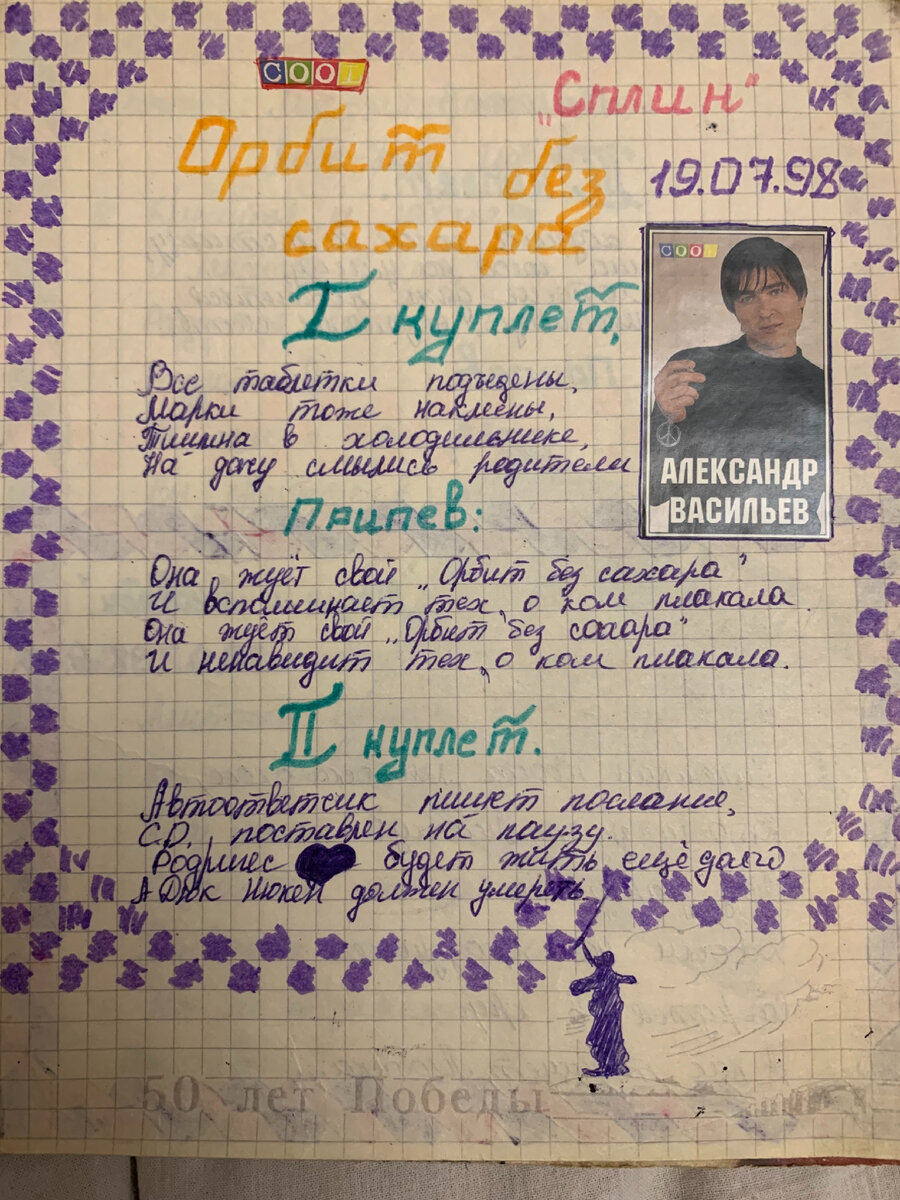 COOL
„Сплин"
Орбит без
сахара
19.07.98
COOL
АЛЕКСАНДР
ВАСИЛЬЕВ
I куплет.
Все таблетки подъедены,
Марки тоже наклеены,
Тишина в холодильнике,
На дачу смылись родители
Припев:
Она ждёт свой „Орбит без сахара"
И вспоминает тех, о ком плакала.
Она ждёт свой „Орбит без сахара"
И ненавидит тех, о ком плакала.
II куплет.
Автоответсик пишет послание,
C.D. поставлен на паузу.
Родригес будет жить ещё долго
А Дюк Нюкем должен умереть.
50 лет Победы